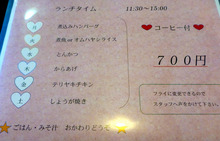 ランチタイム 11:30～15:00
月 煮込みハンバーグ
火 煮魚 or オムハヤシライス
水 とんかつ
木 からあげ
金 テリヤキチキン
土 しょうが焼き
コーヒー付
700円
フライに変更できますので
スタッフへ声をかけて下さい。
ごはん・みそ汁 おかわりどうぞ